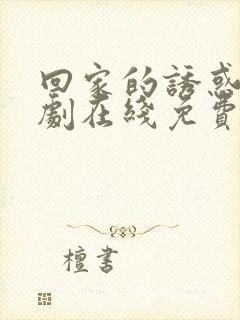 回家的誘惑
劇在綫免費
檀書